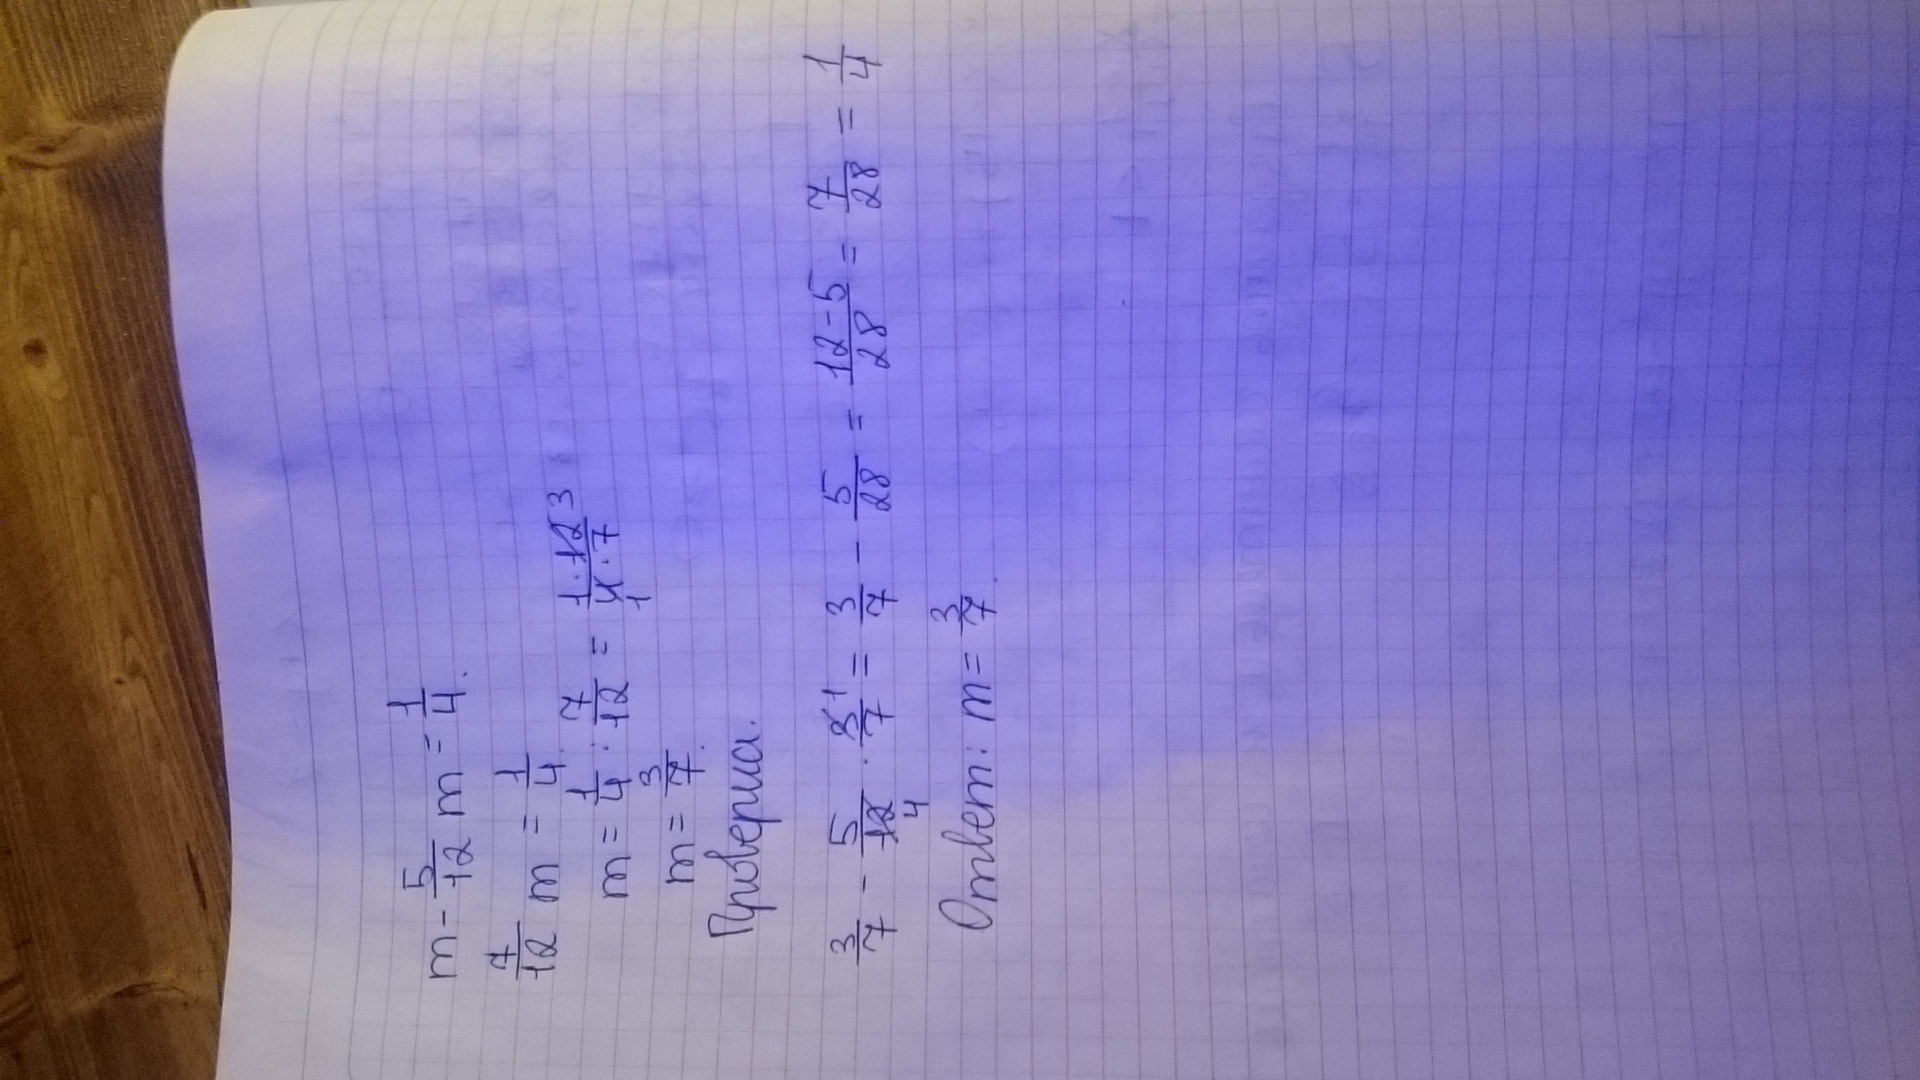 m - 5/12 m = 1/4.
7/12 m = 1/4.
m = 1/4 : 7/12 = 1·12 3/4·7 1
m = 3/7.
Проверка.
3/7 - 5/12 4 · 3 1/7 = 3/7 - 5/28 = 12-5/28 = 7/28 = 1/4
Ответ: m = 3/7.